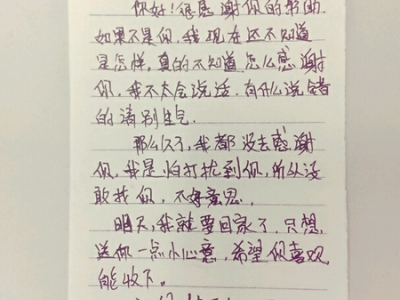 你好！很感谢你的帮助
如果不是你，我现在还不知道
是怎样，真的不知道怎么感谢
你，我不太会说话，有什么说错
的请别生气
那么久了，我都没去感谢
你，我是怕打扰到你，所以没
敢找你，不好意思。
明天，我就要回家了，只想
送你一点小心意，希望你喜欢
能收下。